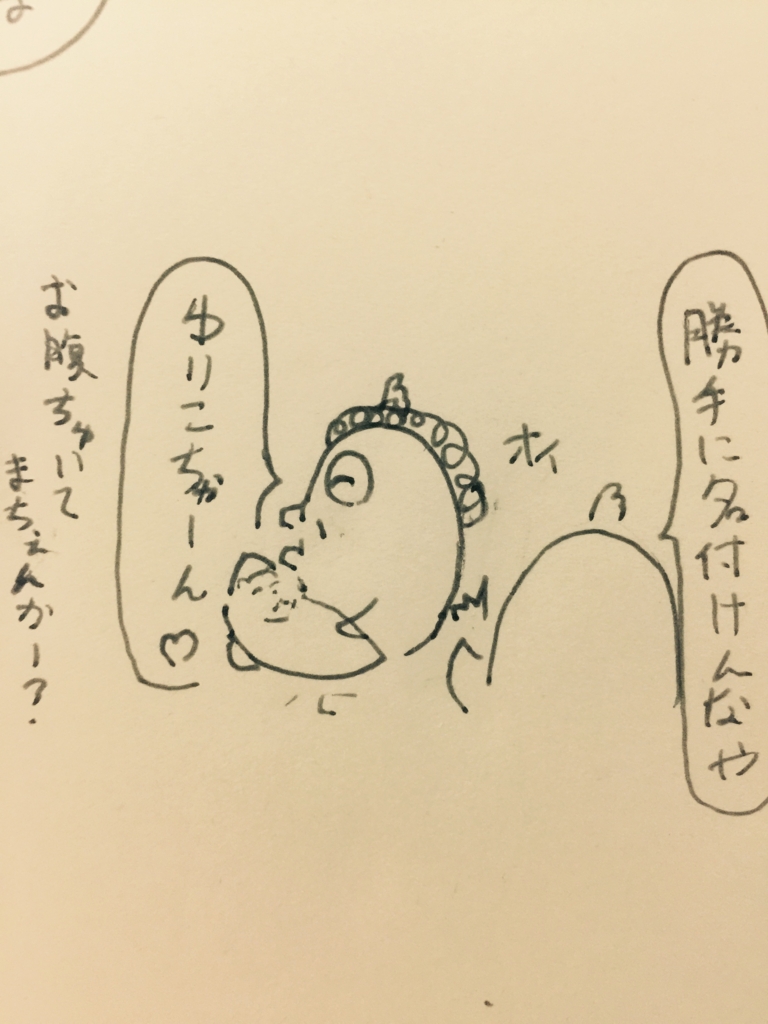 な
勝手に名付けんなや
オイ
ゆりこちゃーん♡
お腹ちゅいて
まちぇんかー?